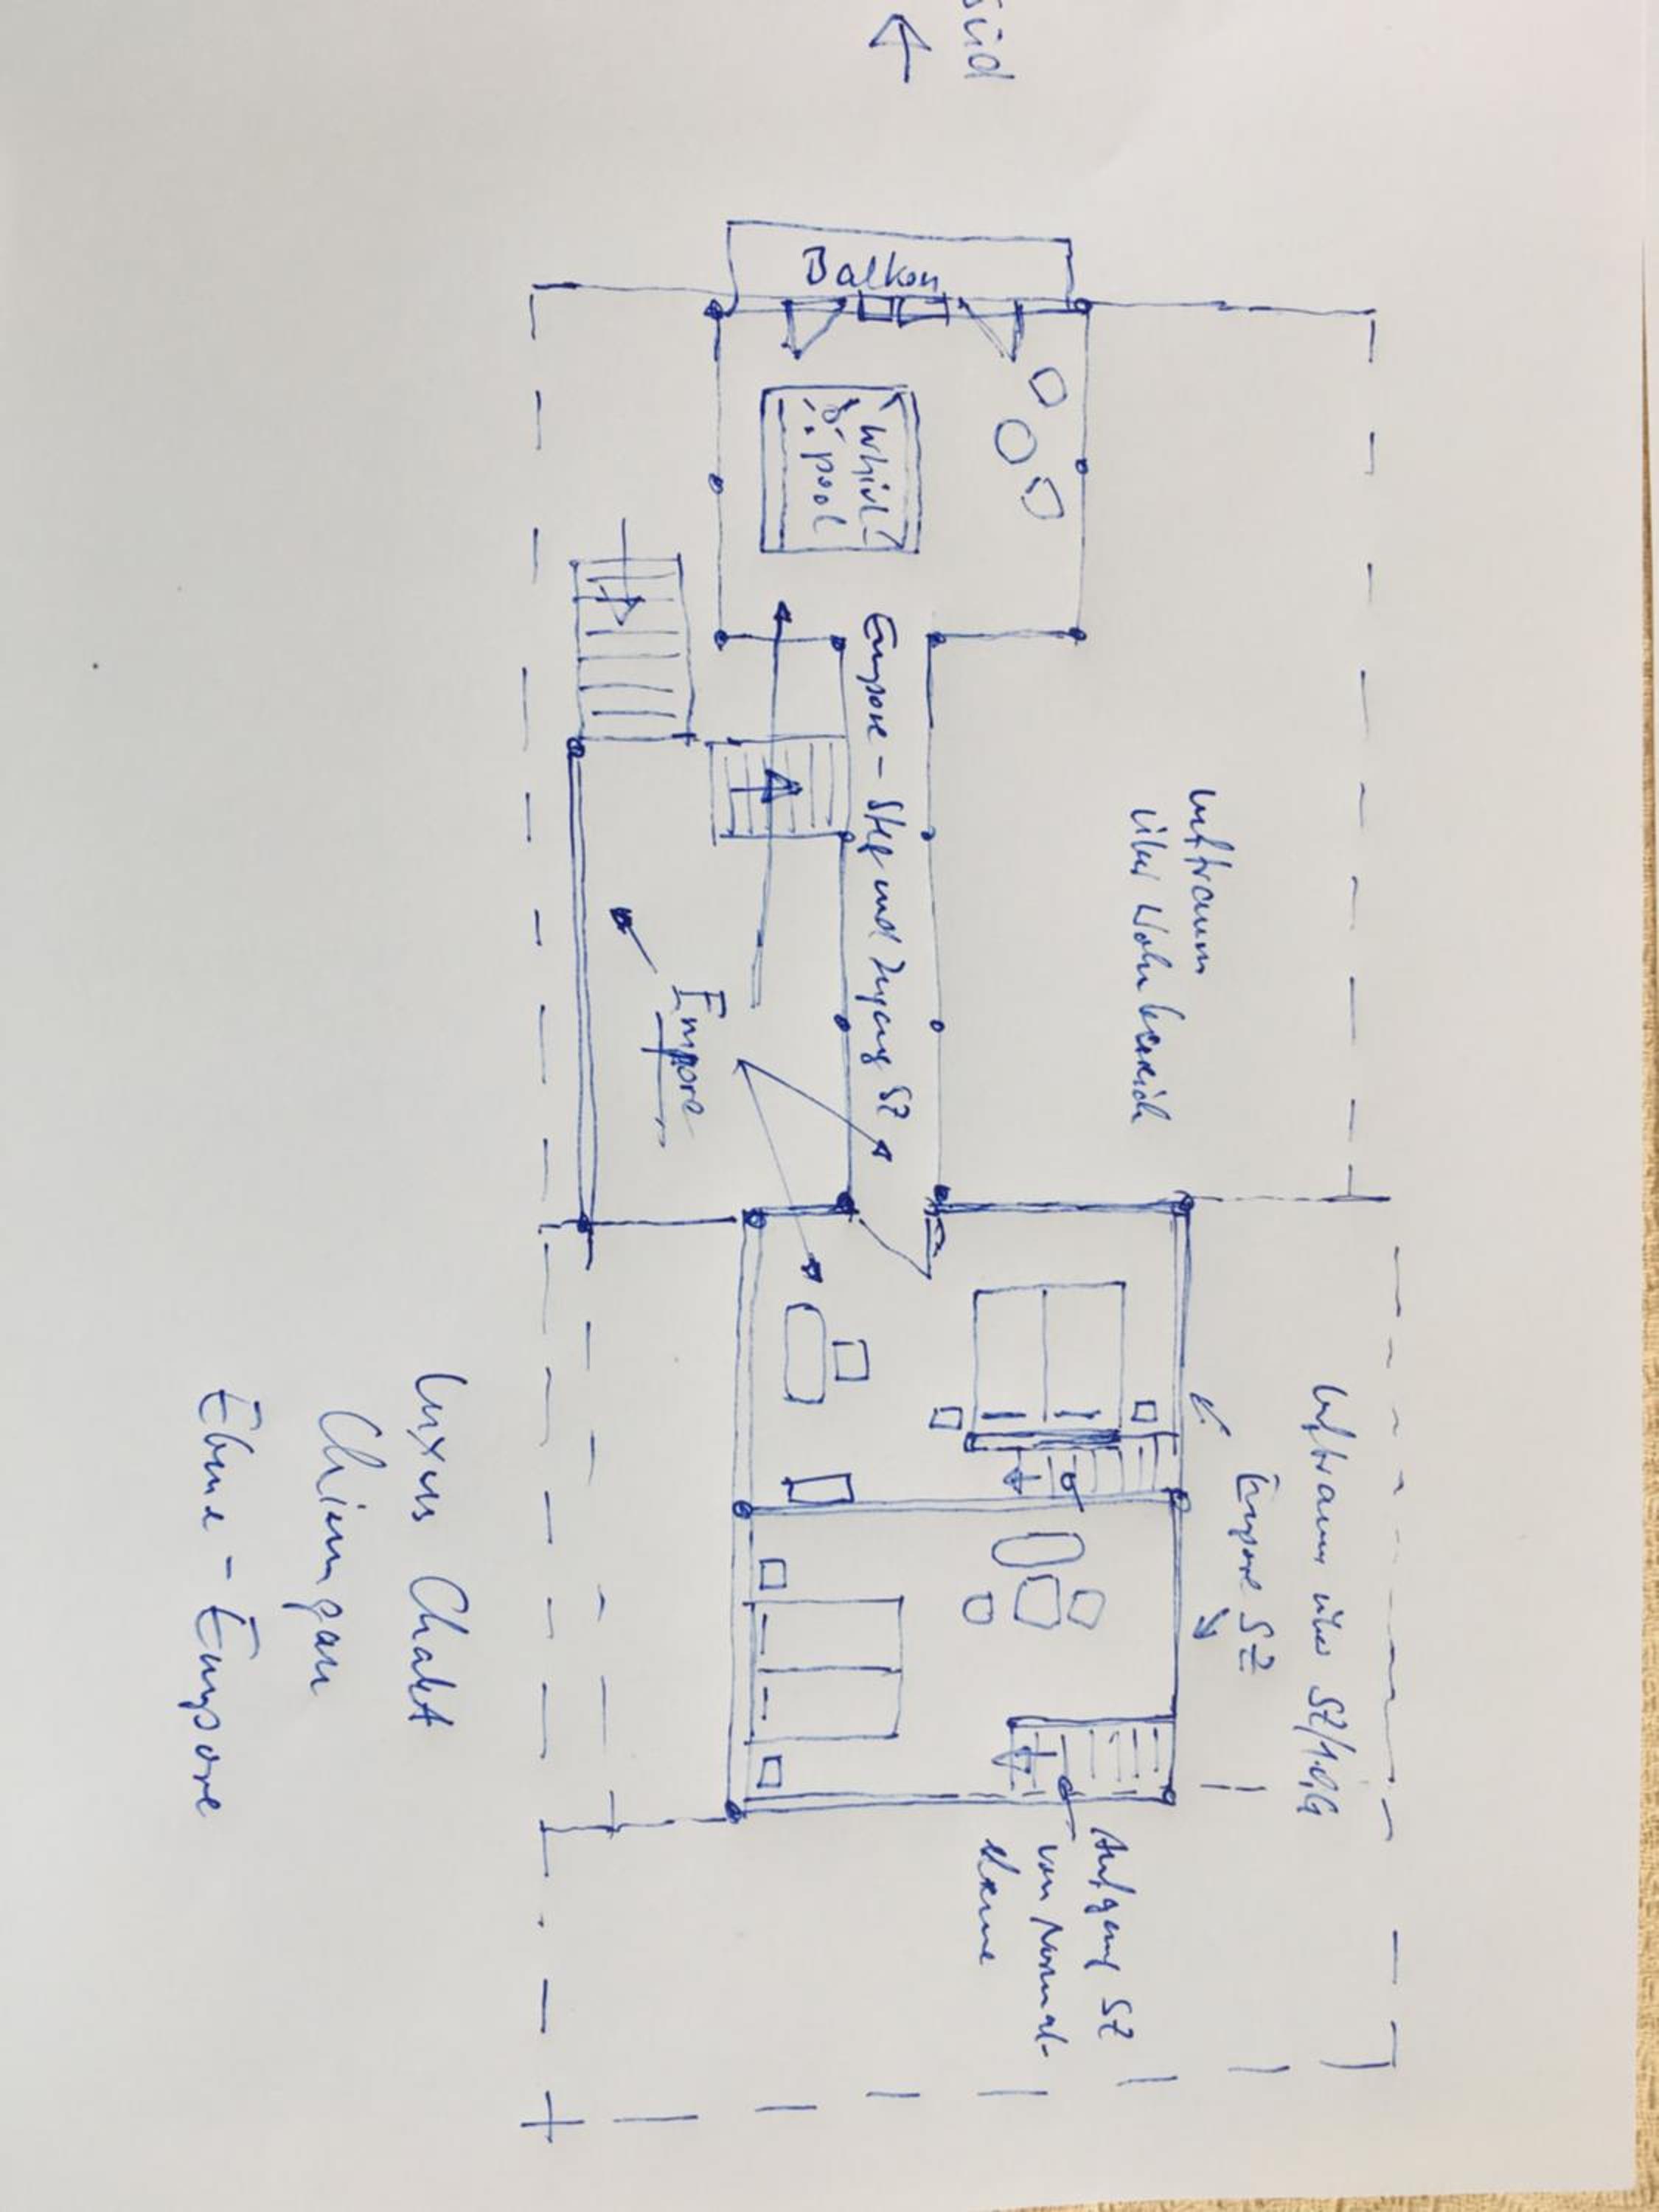 Süd
Balkon
Whirl-
pool
Empore - Steg und Zugang SZ
Luftraum
über Wohnbereich
Empore
Luftraum über SZ/1.OG
Empore SZ
Aufgang SZ
von Normal-
ebene
Luxus Chalet
Chiemgau
Ebene - Empore